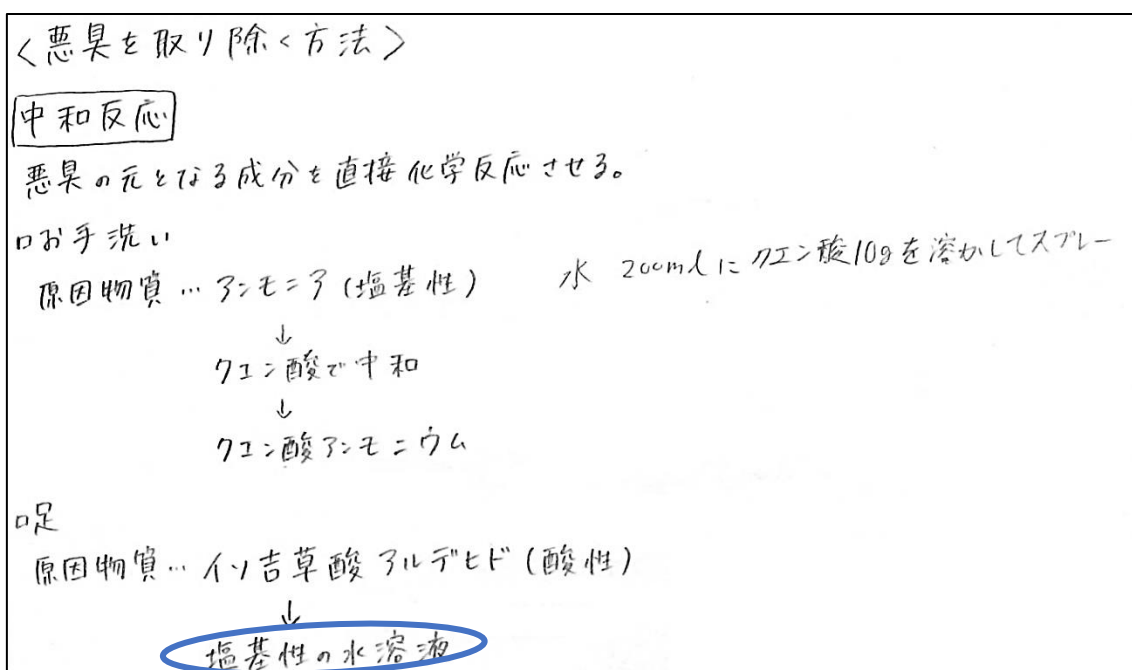 <悪臭を取り除く方法>
中和反応
悪臭の元となる成分を直接化学反応させる。
□お手洗い
原因物質…アンモニア(塩基性) 水 200mlにクエン酸10gを溶かしてスプレー
↓
クエン酸で中和
↓
クエン酸アンモニウム
□足
原因物質…イソ吉草酸アルデヒド(酸性)
↓
塩基性の水溶液